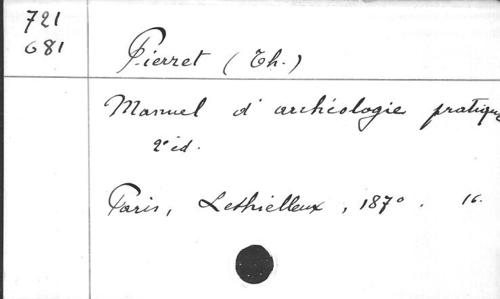 721
681
Pierret (Th.)
Manuel d'archéologie pratique
2e éd.
Paris, Lethielleux, 1870. 16.